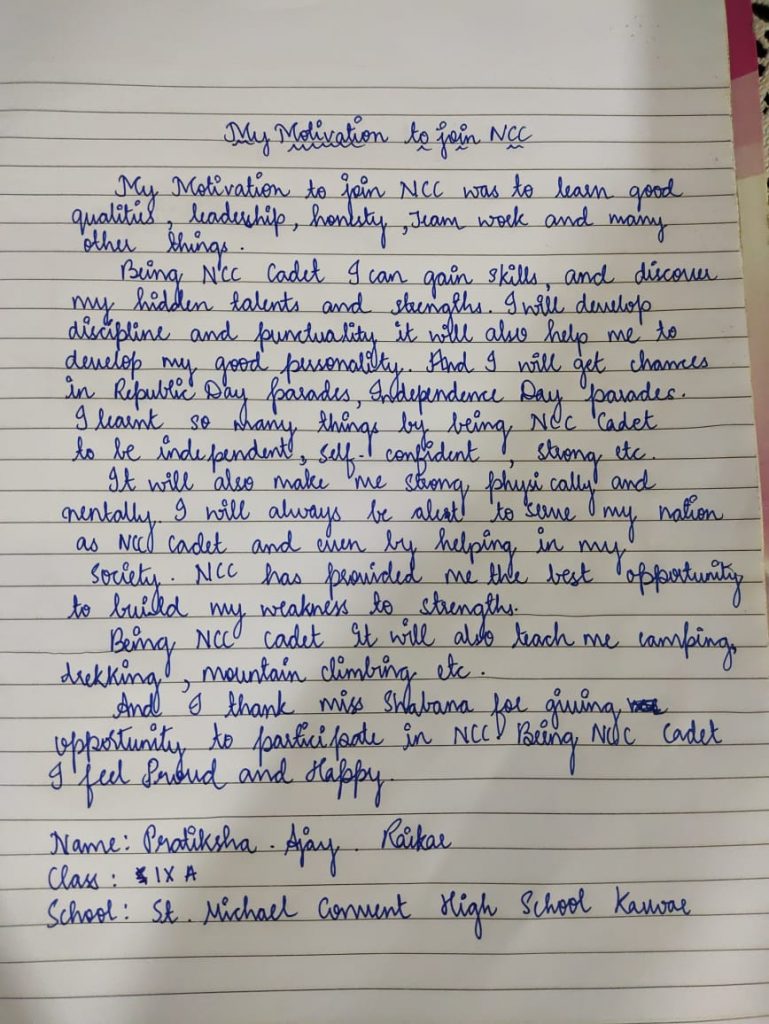 My Motivation to join NCC
My Motivation to join NCC was to learn good
qualities, leadership, honesty, Team work and many
other things.
Being NCC Cadet I can gain skills, and discover
my hidden talents and strengths. I will develop
discipline and punctuality it will also help me to
develop my good personality. And I will get chances
in Republic Day parades, Independence Day parades.
I learnt so many things by being NCC Cadet
to be independent, self-confident, strong etc.
It will also make me strong physically and
mentally. I will always be alert to serve my nation
as NCC cadet and even by helping in my
society. NCC has provided me the best opportunity
to build my weakness to strengths.
Being NCC cadet it will also teach me camping,
trekking, mountain climbing etc.
And I thank miss Shabana for giving
opportunity to participate in NCC Being NCC Cadet
I feel Proud and Happy.
Name: Pratiksha. Ajay. Raikar
Class: IX A
School: St. Michael Convent High School Karwar